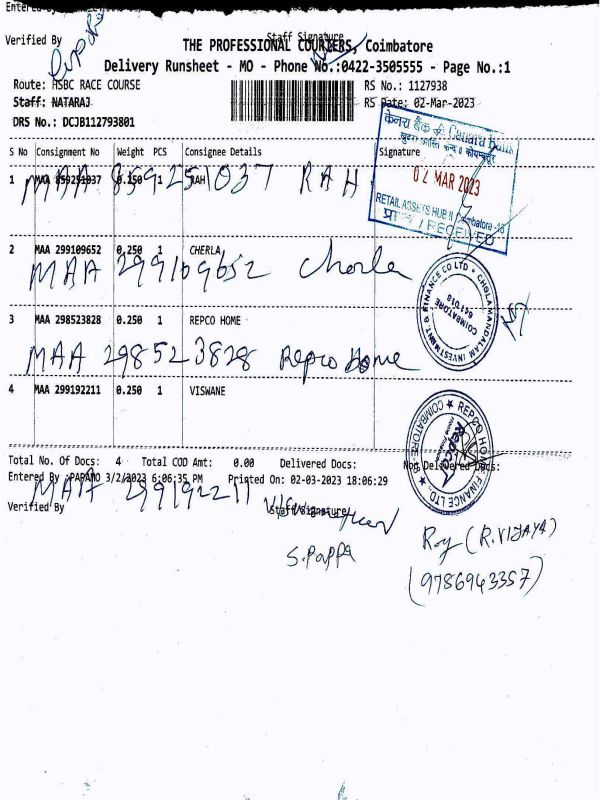 Verified By Staff Signature
THE PROFESSIONAL COURIERS, Coimbatore
Delivery Runsheet - MO - Phone No.:0422-3505555 - Page No.:1
Route: HSBC RACE COURSE RS No.: 1127938
Staff: NATARAJ RS Date: 02-Mar-2023
DRS No.: DCJB112793801
केनरा बैंक Canara Bank
02 MAR 2023
RETAIL ASSETS HUB II Coimbatore-18
प्राप्त / RECEIVED
S No Consignment No Weight PCS Consignee Details Signature
1 MAA 859251037 0.150 1 RAH
MAA 859251037 RAH
2 MAA 299109652 0.250 1 CHERLA
MAA 299109652 Chorla
CHOLAMANDALAM INVESTMENT & FINANCE CO LTD
COIMBATORE
641 018
3 MAA 298523828 0.250 1 REPCO HOME
MAA 298523828 Repco Home
4 MAA 299192211 0.250 1 VISWANE
REPCO HOME FINANCE LTD., COIMBATORE
Repco
Total No. Of Docs: 4 Total COD Amt: 0.00 Delivered Docs: Not Delivered Docs:
Entered By :PAPAMO 3/2/2023 6:06:35 PM Printed On: 02-03-2023 18:06:29
MAA 299192211
Verified By Staff Signature
S. Pappa
Roy (R. VIJAYA)
(9786943357)